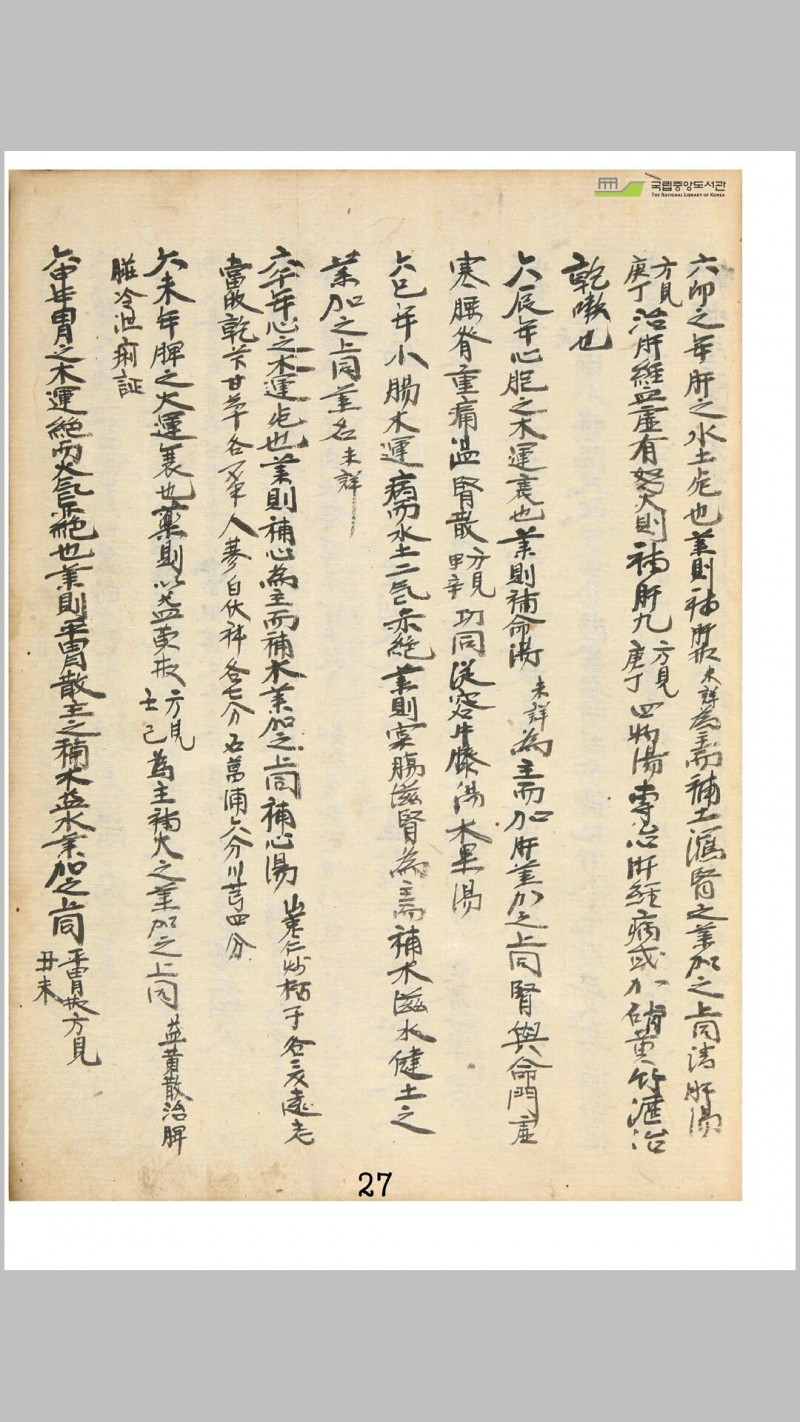 국립중앙도서관
THE NATIONAL LIBRARY OF KOREA
六卯之年肝之水土克也 藥則補肝散 未詳 為主而補土瀉腎之藥加之 上同 清肝湯
方見庚丁 治肝經血虛有怒火則補肝丸 方見庚丁 四物湯 專治肝經病或加 黃竹瀝治
乾嗽也
六辰年心胞之木運衰也 藥則補命湯 未詳 為主而加肝藥加之 上同 腎與命門虛
寒腰脊重痛 溫腎散 方見甲辛 功同 從容牛膝湯 木果湯
六巳年小腸木運病而水土二气亦絶 藥則實腸滋腎為主而補木滋水健土之
藥加之 上同 藥名 未詳
六午年心之木運克也 藥則補心為主而補木藥加之 上同 補心湯 炒 各 遠志
當放乾 甘草各 人蔘白伏神各七分 石菖蒲六分 川芎四分
六未年脾之火運衰也 藥則以益黃散 方見壬己 為主補火之藥加之 上同 益黃散治脾
臟冷泄痢証
六申年胃之木運絶而火气亦絶也 藥則平胃散主之 補木益水藥加之 上同 平胃散方見丑未
27